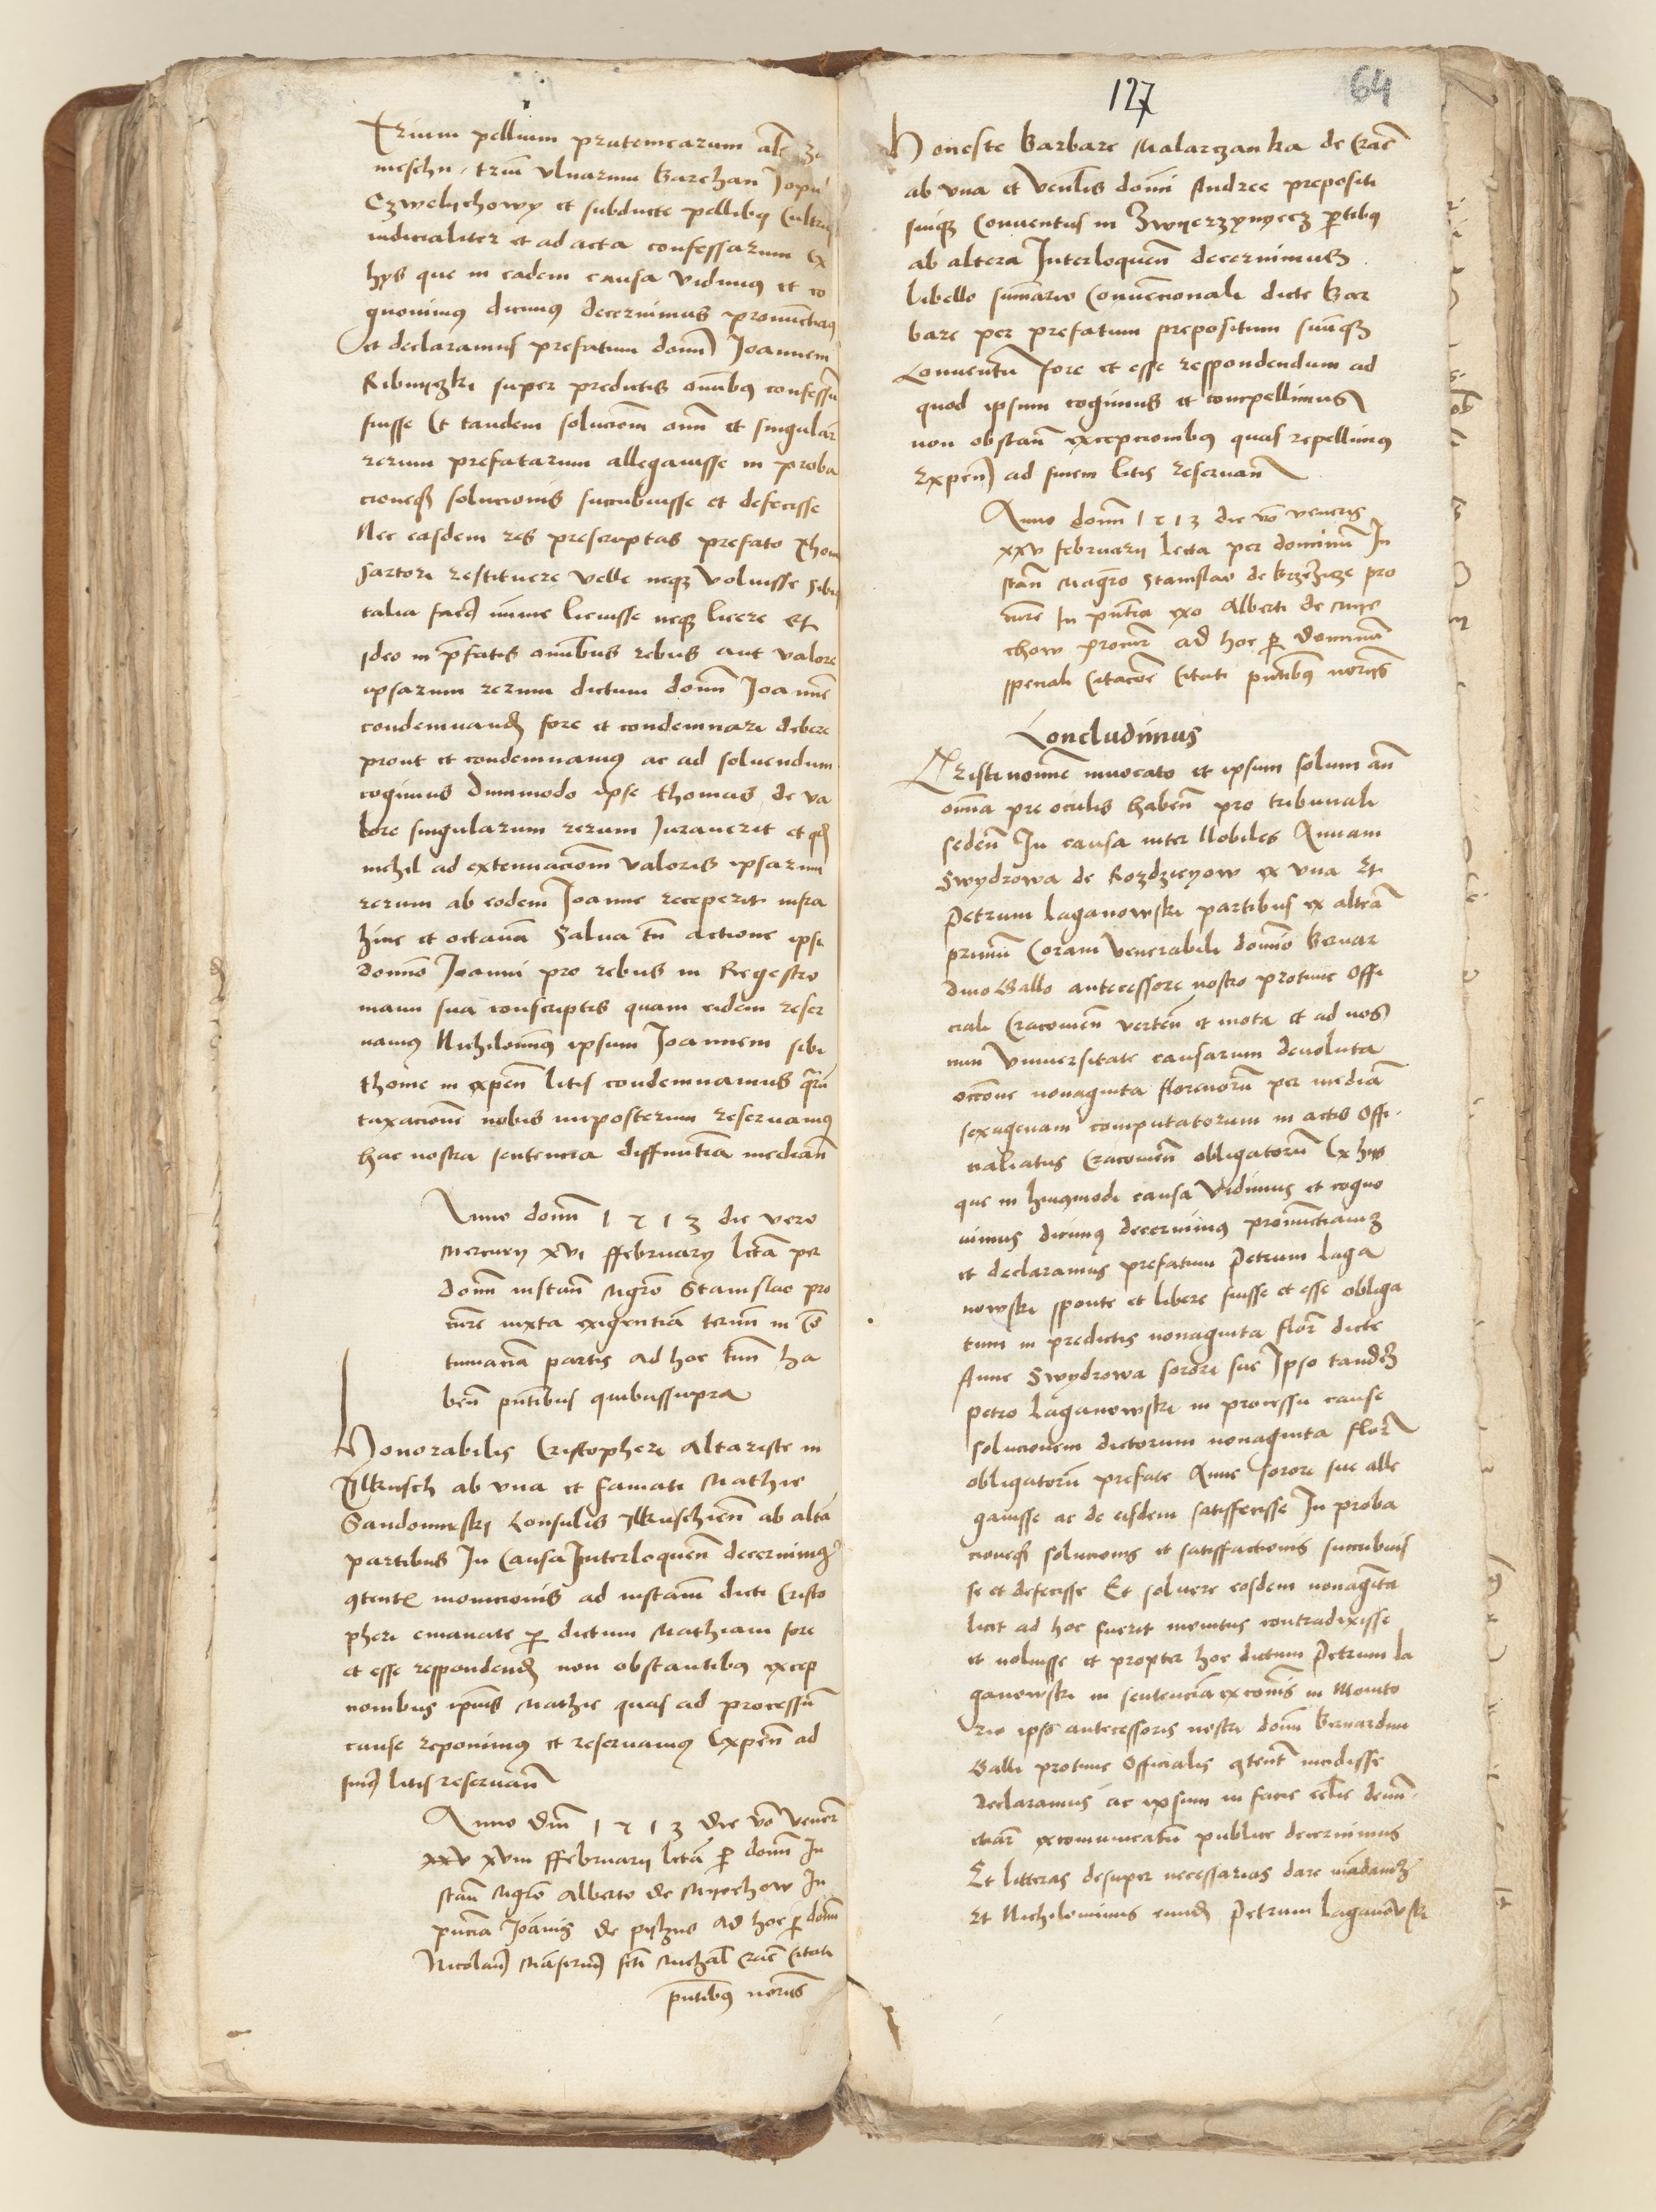 Trium pellium prutenicarum als
meschn. triũ vlnarum Barchan Jopu
Czwelychowy et subducte pellibq Cultrq
iudicialiter et ad acta confessarum Ex
hys que in eadem causa vidimq et co
gnouimq dicimq decernimus pronũctiamq
et declaramus prefatum domñ Joannem
Ribnyczki super predictis omĩbq confessũ
fuisse Et tandem soluciõem omñ et singular
rerum prefatarum allegauisse in proba
cioneqʒ solucionis succubuisse et defecisse
Nec easdem res prescriptas prefato Thom
sartori restituere velle neqʒ voluisse sibi
talia facẽ mĩme licuisse neqʒ licere Et
ideo in p̃fatis omĩbus rebus aut valore
ipsarum rerum dictum domñ Joannẽ
condemnandʒ fore et condemnari debere
prout et condemnamq ac ad soluendum
cogimus Dummodo ipse thomas de va
lore singularum rerum Jurauerit et qʒ
nichil ad extenuaciõem valoris ipsarum
rerum ab eodem Joanne receperit infra
hinc et octauã Salua tñ actione ipsi
domno Joanni pro rebus in Regestro
manu sua conscriptis quam eidem reser
uamq Nichilomĩq ipsum Joannem sibi
thome in expeñ litis condemnamus q̃rũ
taxacionẽ nobis inposterum reseruamq
hac nostra sentencia diffinitĩa mediañ
Anno domñ 1513 die vero
Mercury xvi ffebruary lcta per
domñ instañ Mgr̃o Stanislao pro
cur̃e iuxta exigentiã terminĩ in Cõ
tumaciã partis ad hoc tmñ ha
beñ pñtibus quibussupra
Honorabilis Cristopheri Altariste in
Ilkusch ab vna et famati Mathie
Sandomirski Consulis Ilkuschieñ ab altã
partibus In Causa Interloqueñ decernimqʒ
9tentꝭ monicionis ad instañ dicti Cristo
pheri emanate p dictum Mathiam fore
et esse respondendʒ non obstantibq excep
cionibus ipĩus Mathie quas ad processũ
cause reponimq et reseruamq Expeñ ad
finẽ litis reseruañ
Anno dñi 1513 die võ vener̃
xxv xviii ffebruarii lctã p domñ In
stañ Mgr̃o Alberto de Myechow In
pñcia Joãnis de pylzno ad hoc p domñ
Nicolaũ citati
pñtibq norijs
127
64
Honeste Barbare Malarczanka de Crac̃
ab vna et Veñlis domĩ Andree prepositi
suiqʒ Conuentus in Zwyerzynyecz p̃tibq
ab altera Interloqueñ decernimus
libello sum̃ario Conuẽcionali dicte Bar
bare per prefatum prepositum suũqʒ
Conuentũ fore et esse respondendum ad
quod ipsum cogimus et compellimus
non obstañ excepcionibq quas repellimq
Expeñ ad finem litis reseruañ
Anno domñ 1513 die võ veneris
xxv februarii lecta per dominũ In
stañ Magr̃o Stanislao de Brzezicze pro
cur̃e In pñtia exo Alberti de Mye
chow procur̃ ad hoc p dominũ
speciali citaciõe citati pñtibq norijs
Concludimus
Cristi nomĩe inuocato et ipsum solum añ
omĩa pre oculis habeñ pro tribunali
sedeñ In causa inter Nobiles Annam
Swydrowa de Rozdzieyow ex vna Et
Petrum laganowski partibus ex alterã
primũ Coram Venerabili domĩo Bernar
dino Gallo antecessore nostro protunc Offi
ciali Cracouieñ verteñ et mota et ad nos
cum Vniuersitate causarum deuoluta
occ̃one nonaginta florenorũ per mediã
sexagenam computatorum in actis Offi
cialatus Cracouieñ obligatorũ Ex hijs
que in huiqmodi causa Vidimus et cogno
uimus dicimq decernimq pronũctiamqʒ
et declaramus prefatum Petrum laga
nowski sponte et libere fuisse et esse obliga
tum in predictis nonaginta flor̃ dicte
Anne Swydrowa sorori sue Ipso tandeʒ
petro laganowski in processu cause
solucionem dictorum nonaginta flor̃
obligatorũ prefate Anne sorori sue alle
gauisse ac de eisdem satisfecisse In proba
cioneqʒ solucionis et satisfactionis succubuis
se et defecisse Et soluere eosdem nonagĩta
licet ad hoc fuerit monitus contradixisse
et noluisse et propter hoc dictum Petrum la
ganowski in sentenciã excom̃is in Monito
rio ipsq antecessoris nostri domĩ Bernardini
Galli protunc Officialis 9tentꝭ incidisse
declaramus ac ipsum in facie ecclie denũ
ciar̃ excom̃unicatũ publice decernimus
Et litteras desuper necessarias dare mãdamqʒ
Et Nichilominus eundʒ Petrum laganowski